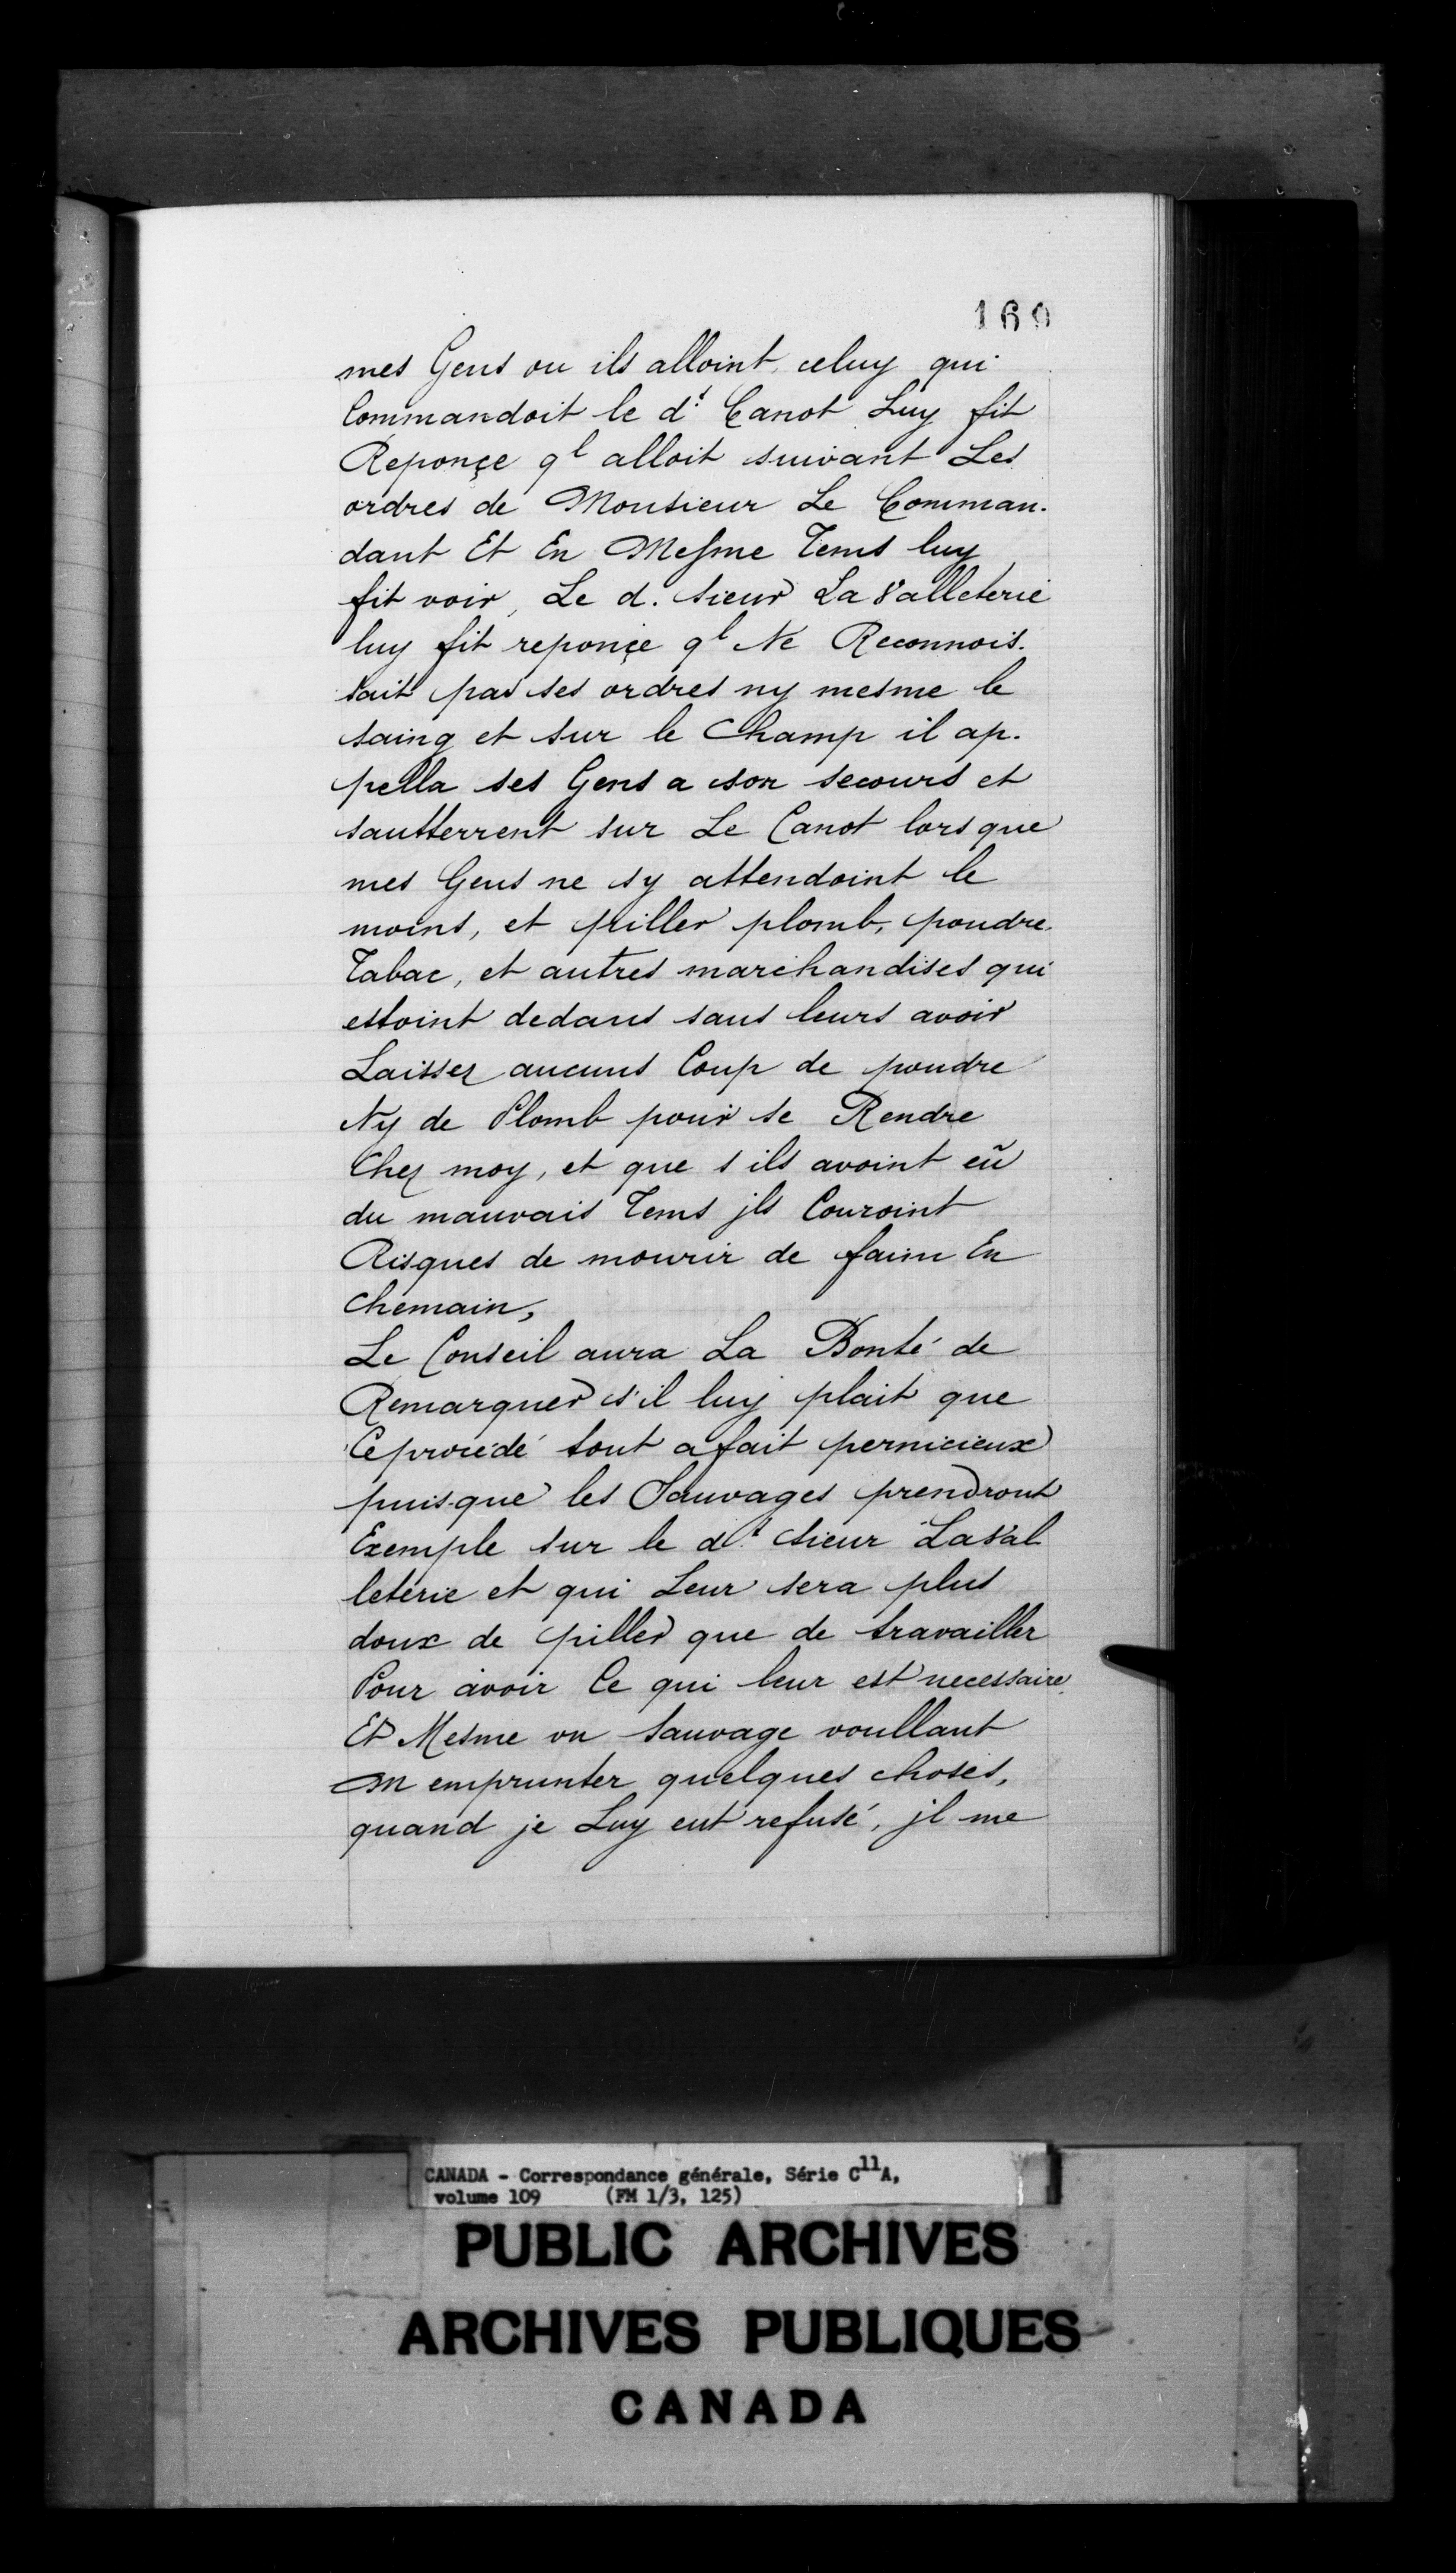 169
mes Gens ou ils alloint, celuy qui
Commandoit le d.t Canot Luy fit
Reponçe ql alloit suivant Les
ordres de Monsieur Le Comman-
dant Et En Mesme Tems luy
fit voir, Le d. sieur La Valleterie
luy fit reponçe ql Ne Reconnois-
sait pas ses ordres ny mesme le
saing et sur le Champ il ap-
pella ses Gens a son secours et
sautterrent sur Le Canot lors que
mes Gens ne sy attendoint le
moins, et piller plomb, poudre.
Tabac, et autres marchandises qui
estoint dedans sans leurs avoir
Laissez aucuns Coup de poudre
Ny de Plomb pour se Rendre
Chez moy, et que s ils avoint eũ
du mauvais Tems jls Couroint
Risques de mourir de faim En
chemain,
Le Conseil aura La Bonté de
Remarquer s'il luy plait que
Ce procédé tout a fait pernicieux
puis-que les Sauvages prendront
Exemple sur le d.t sieur LaVal
leterie et qui Leur sera plus
doux de piller que de travailler
Pour avoir Ce qui leur est necessaire.
Et Mesme un sauvage voullant
M emprunter quelques choses,
quand je Luy eut refusé, jl me
CANADA - Correspondance générale, Série C11A,
volume 109 (FM 1/3, 125)
PUBLIC ARCHIVES
ARCHIVES PUBLIQUES
CANADA